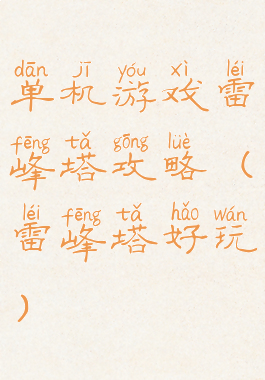 dān jī yóu xì léi
单机游戏雷
fēng tǎ gōng lüè
峰塔攻略（
léi fēng tǎ hǎo wán
雷峰塔好玩
）